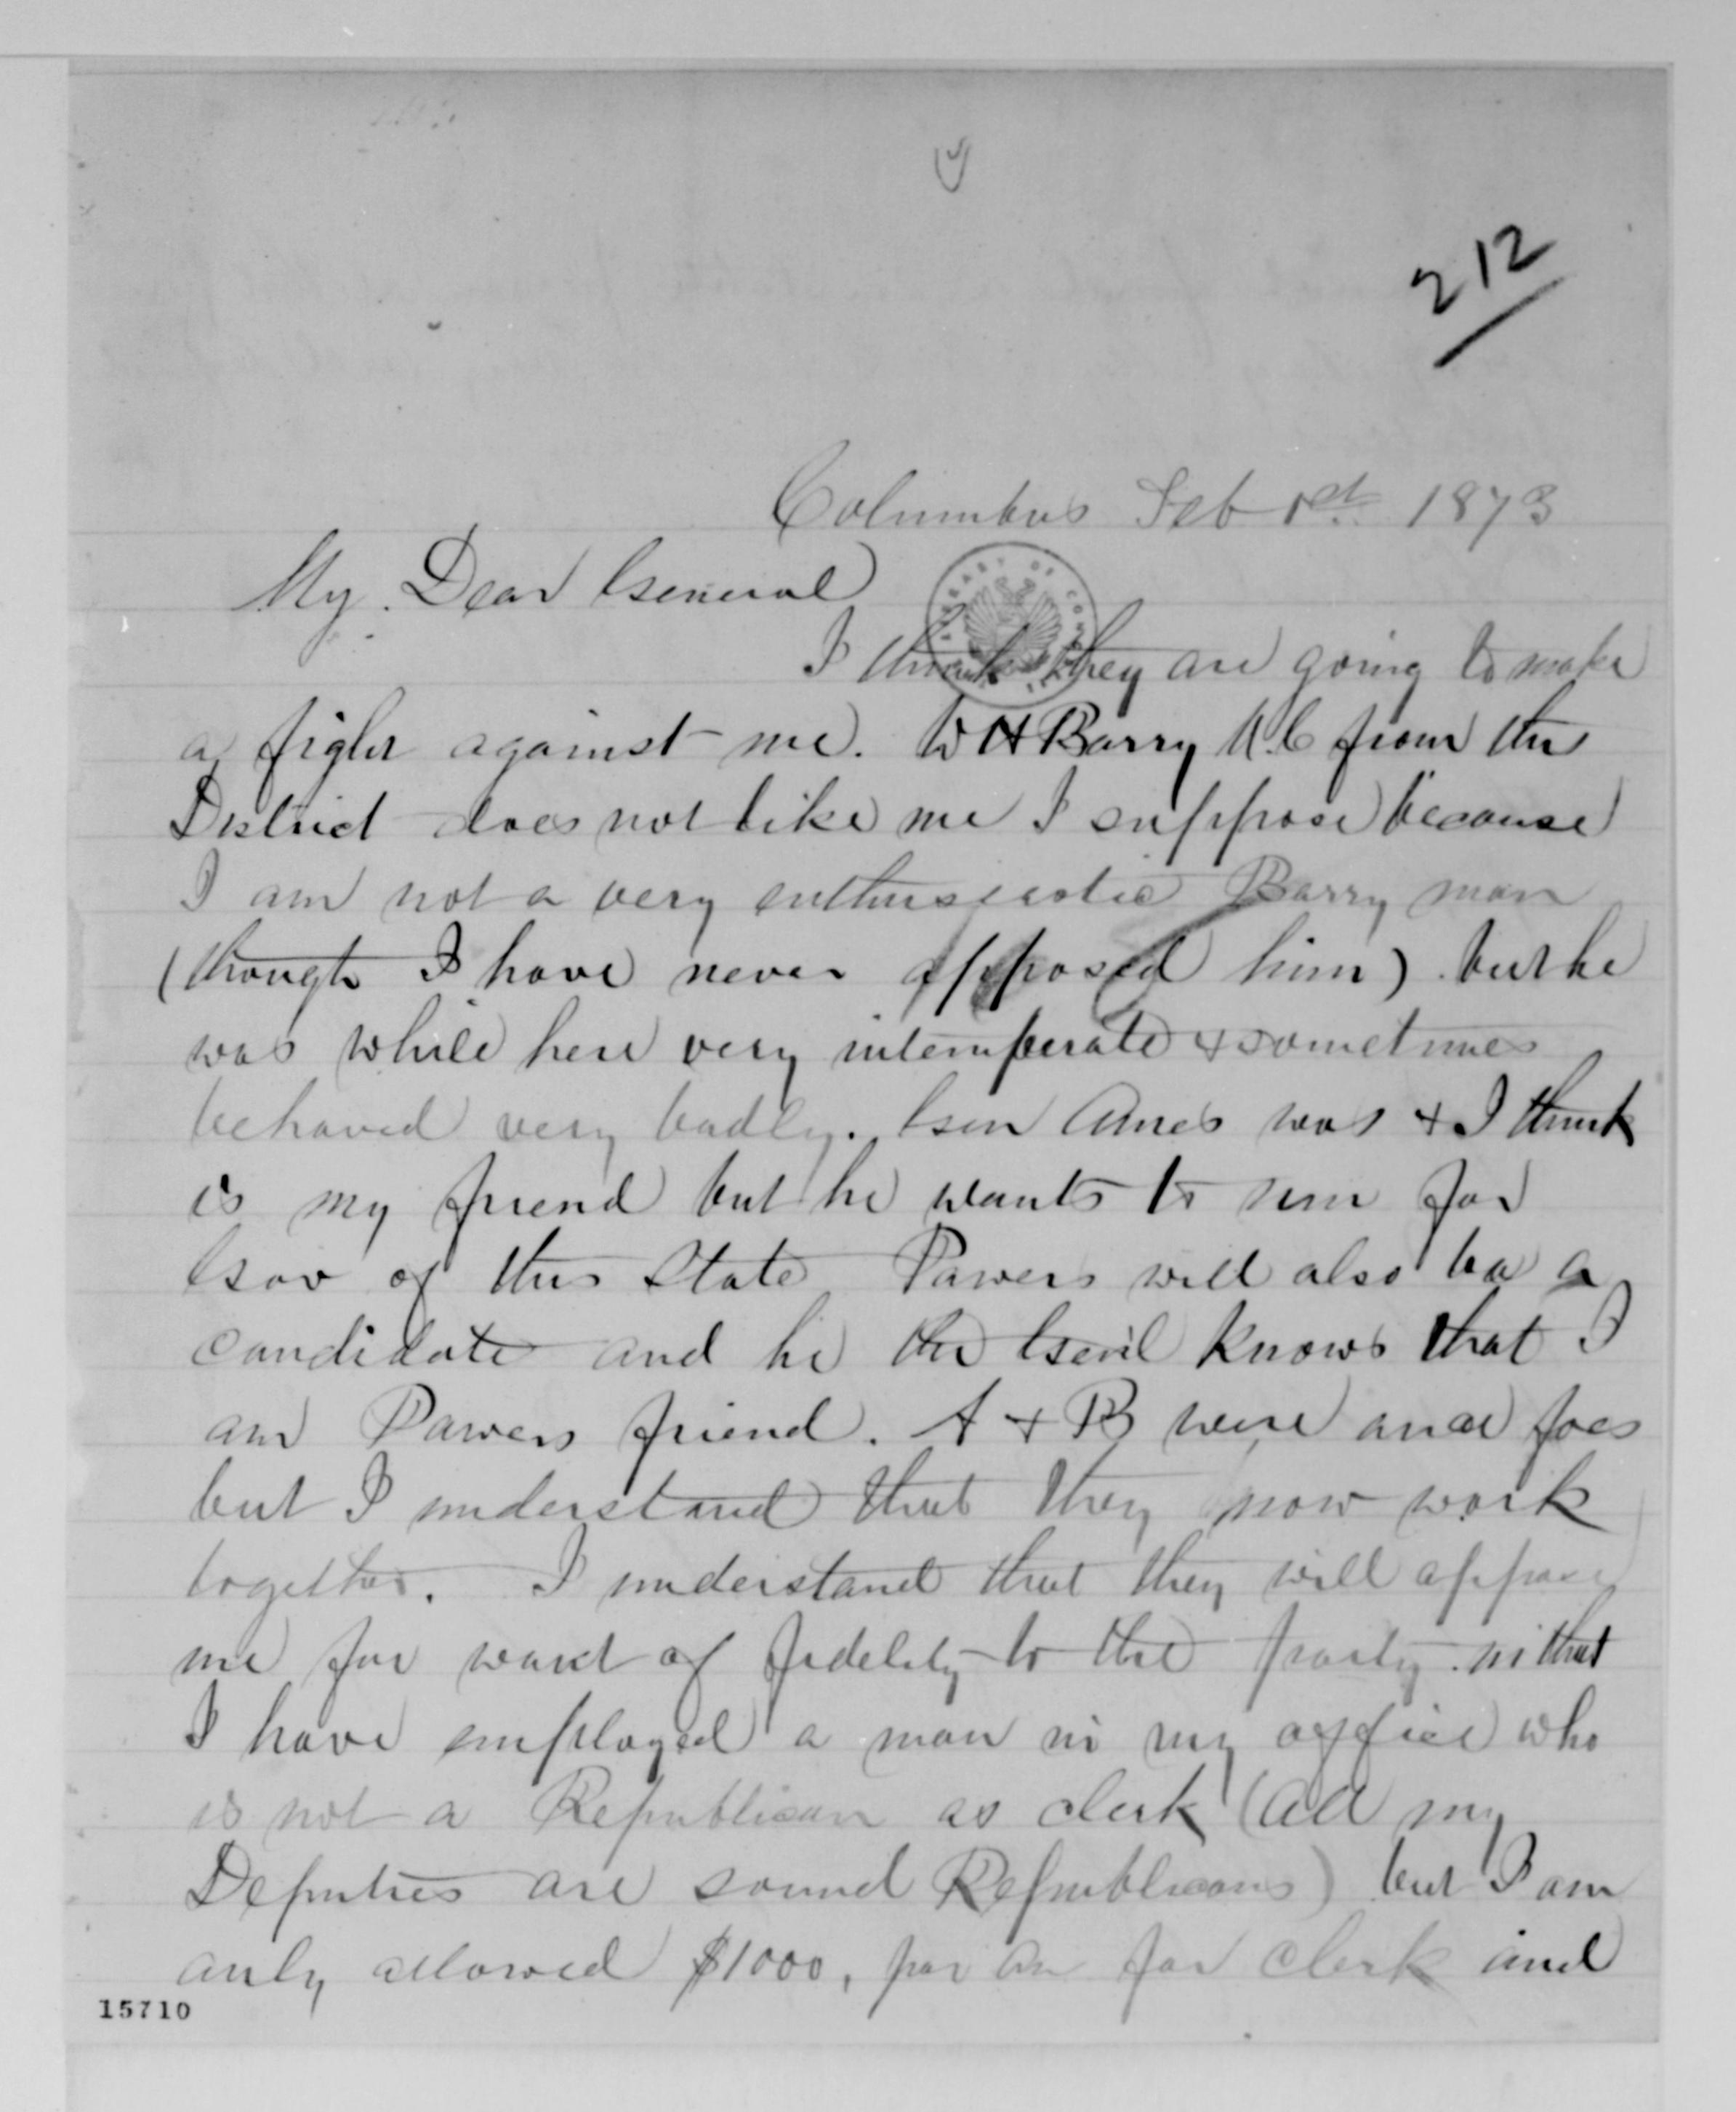 212
Columbus Feb 1st 1873
My Dear General
I think they are going to make
a fight against me. W H Barry M.C from this
District does not like me I suppose because
I am not a very enthusiastic Barry man
(though I have never opposed him) but he
was while here very intemperate & sometimes
behaved very badly. Gen Ames was & I think
is my friend but he wants to run for
Gov of this State Powers will also be a
candidate and he the Genl knows that I
am Powers friend. A & B were once foes
but I understand that they now work
together. I understand that they will oppose
me for want of fidelity to the party in that
I have employed a man in my office who
is not a Republican as clerk (all my
Deputies are sound Republicans) but I am
only allowed $1000, per an for clerk and
15710